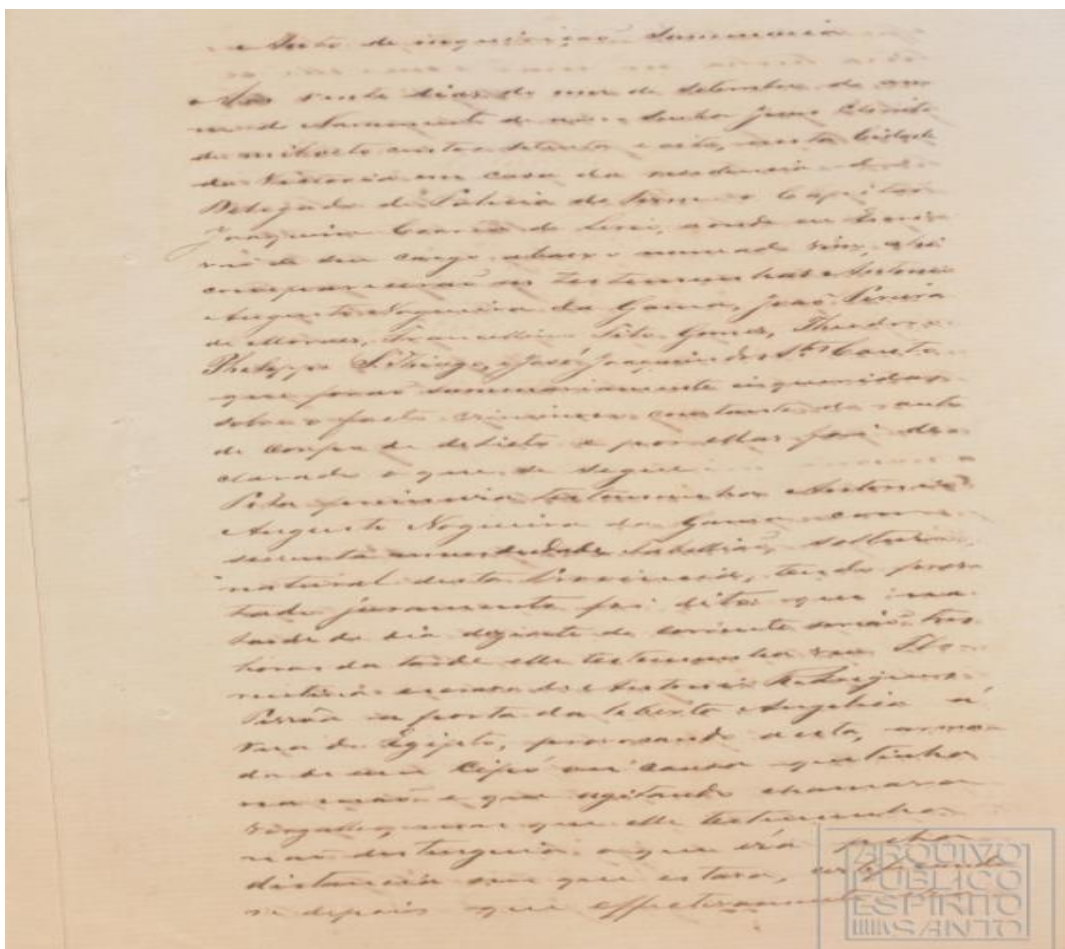 Auto de inquirição Summaria
Aos vinte dias do mez de Setembro do an
no do Nascimento de nosso Senhor Jesus Christo
de mil oito centos setenta e oito, nesta Cidade
da Victoria em casa da residencia do
Delegado de Policia do Termo o Capitão
Joaquim Correa de Lirio, aonde eu Escri
vão de seu cargo abaixo nomeado vim, ahi
comparecerão as testemunhas Antonio
Augusto Nogueira da Gama, João Pereira
de Moraes, Francellino Tito Gomes, Theodoro
Phelippe S. Thiago, e José Joaquim do Couto
que forão summariamente inqueridas
sobre o facto criminoso constante do auto
de corpo de delicto e por ellas foi de
clarado o que se segue
Pela primeira testemunha Antonio
Augusto Nogueira da Gama com
secenta annos de idade, solteiro,
natural desta Provincia, tendo pres
tado juramento foi dito que na
tarde do dia dezisete do corrente serião tres
horas da tarde elle testemunha vio
escravo de Antonio Rodrigues
na porta da liberta Angelica á
rua do Egipto, a esta, arma
do de um Cipó ou cousa que tinha
na mão e que agitando chamava
que elle testemunha
não destinguio o que era pela
distancia em que estava,
se depois que effectivamente
ARQUIVO
PÚBLICO
ESPÍRITO
SANTO